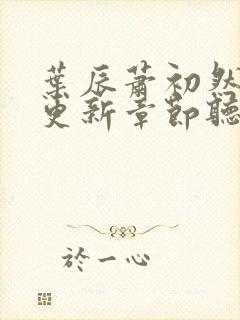 葉辰蕭初然
更新章節聽
於一心